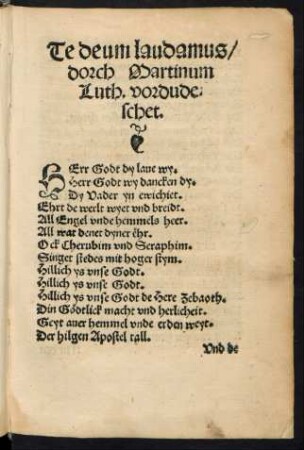 Te deum laudamus/
dorch Martinum
Luth. vordude-
schet.
HErr Godt dy laue wy.
Herr Godt wy dancken dy.
Dy Vader yn ewichiet.
Ehrt de werlt wyet vnd breidt.
All Engel vnde hemmels heer.
All wat denet dyner ehr.
Ock Cherubim vnd Seraphim.
Singet stedes mit hoger stym.
Hillich ys vnse Godt.
Hillich ys vnse Godt.
Hillich ys vnse Godt de Here Zebaoth.
Din Gödtlick macht vnd herlicheit.
Geyt auer hemmel vnde erden weyt.
Der hilgen Apostel tall.
Vnd de